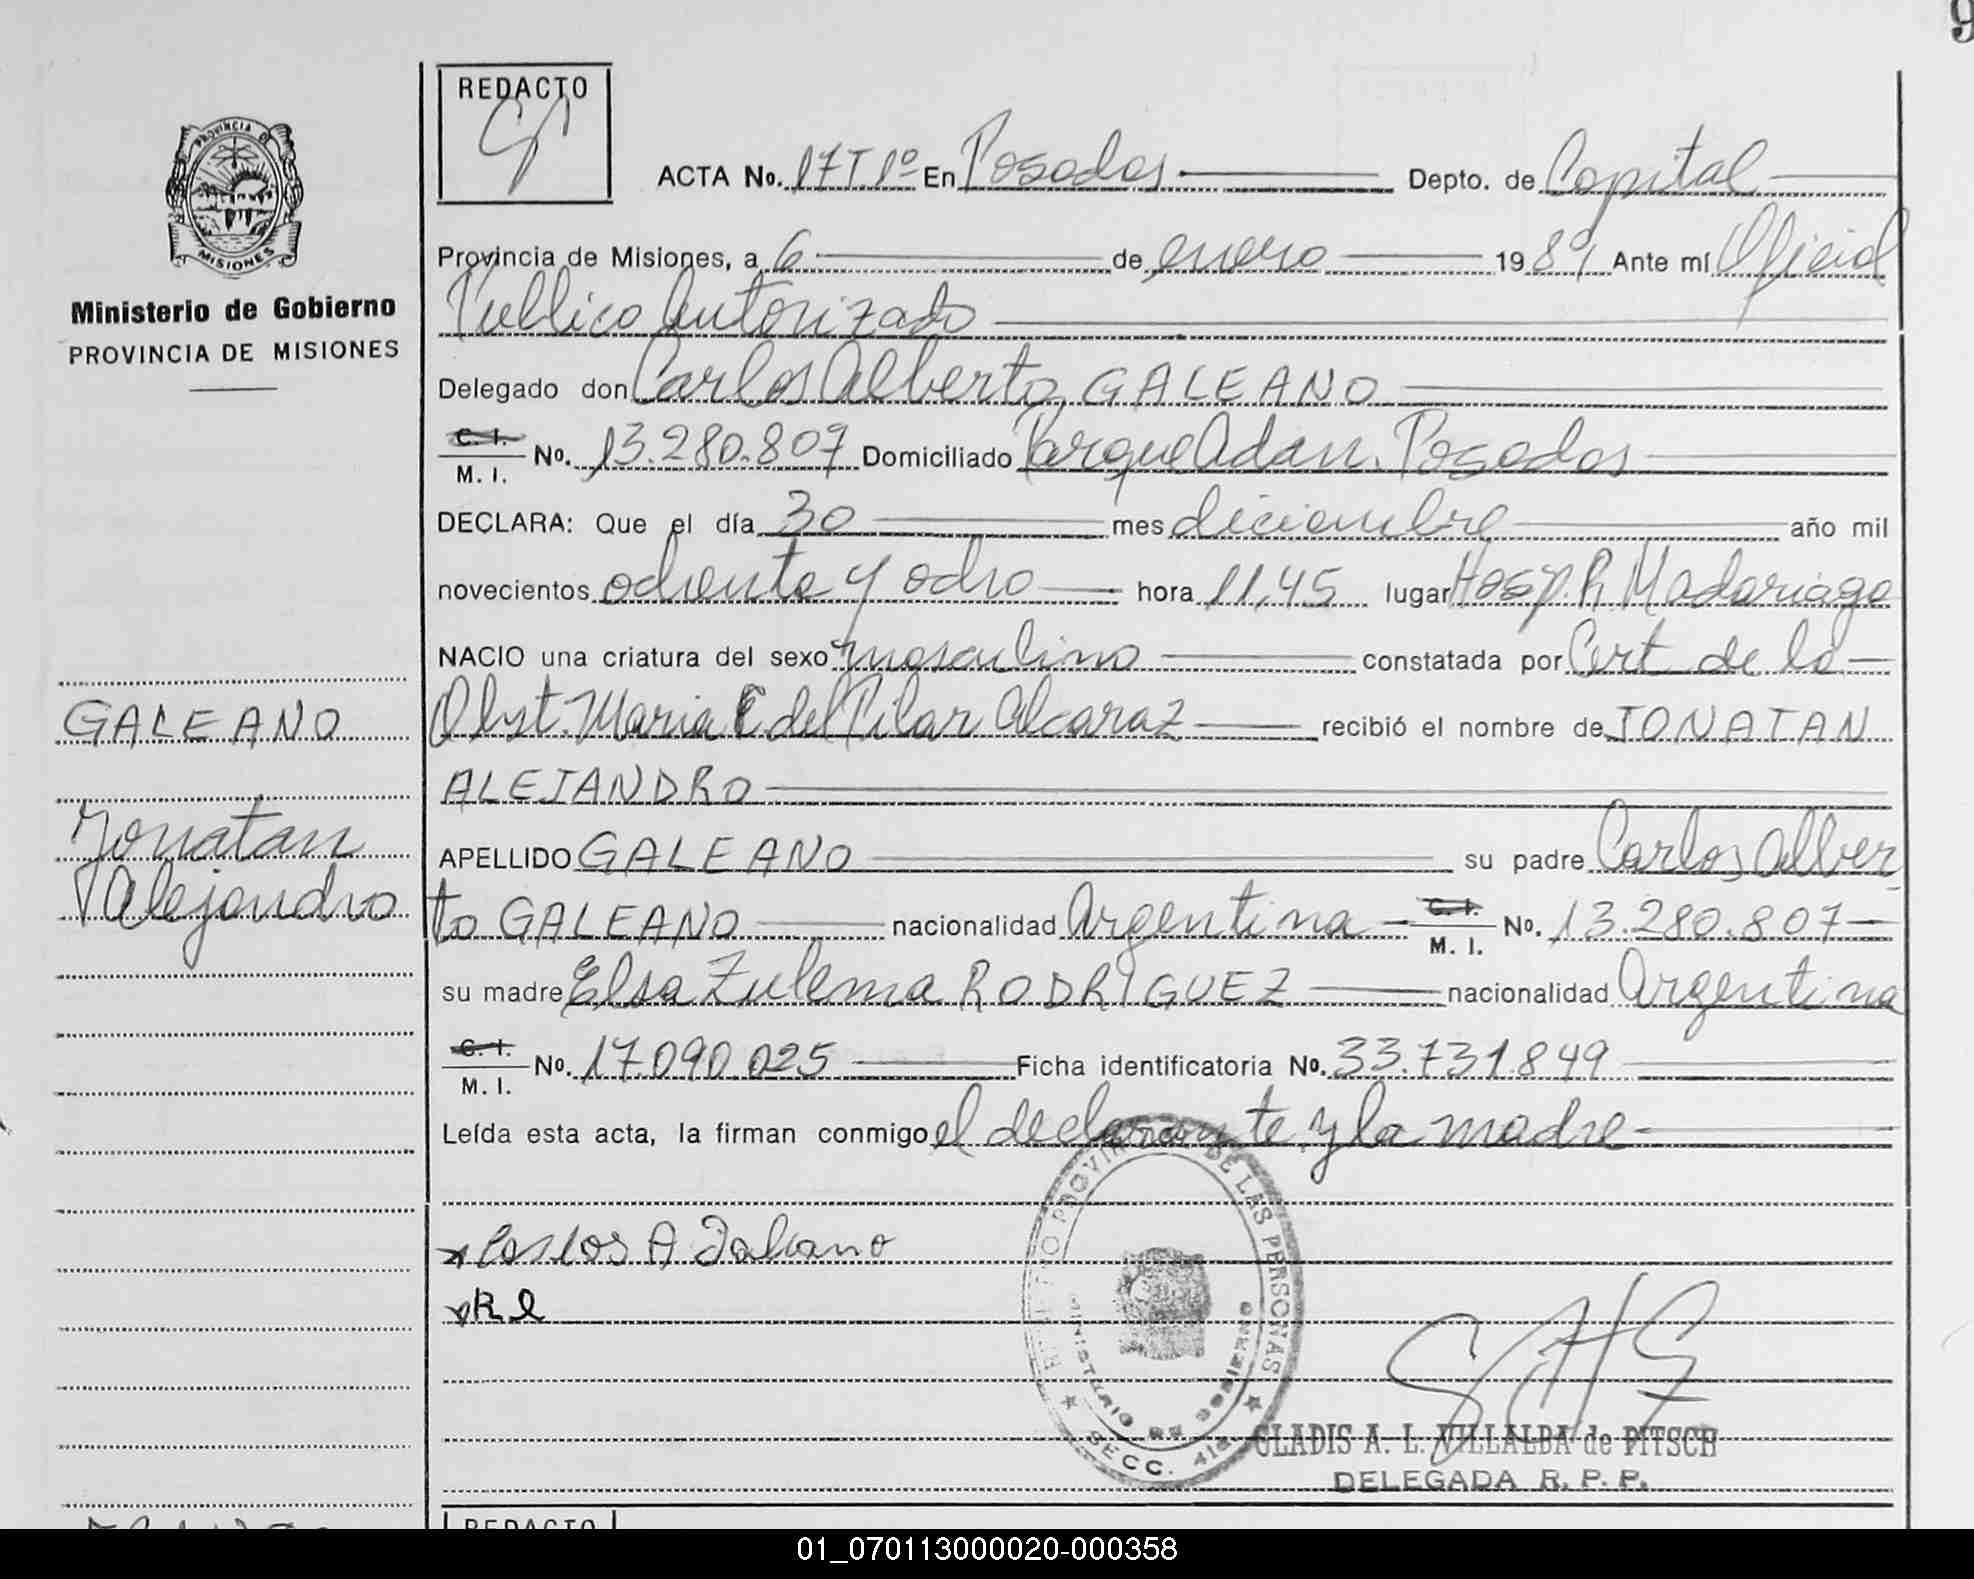 9
REDACTO
PROVINCIA DE
MISIONES
Ministerio de Gobierno
PROVINCIA DE MISIONES
ACTA No. 17T.1º En Posadas Depto. de Capital
Provincia de Misiones, a 6 de enero 1989 Ante mí Oficial
Publico Autorizado
Delegado don Carlos Alberto GALEANO
C. I. M. I. No. 13.280.807 Domiciliado Parque Adam. Posadas
DECLARA: Que el día 30 mes diciembre año mil
novecientos ochenta y ocho hora 11,45 lugar Hosp. R. Madariaga
NACIO una criatura del sexo masculino constatada por Cert de la
Obst. Maria C. del Pilar Alcaraz recibió el nombre de JONATAN
ALEJANDRO
APELLIDO GALEANO su padre Carlos Alber
to GALEANO nacionalidad Argentina C. I. M. I. No. 13.280.807
su madre Elsa Zulema RODRIGUEZ nacionalidad Argentina
C. I. M. I. No. 17.090.025 Ficha identificatoria No. 33.731.849
Leída esta acta, la firman conmigo el declarante y la madre
GALEANO
Jonatan
Alejandro
Carlos A. Galeano
R l
REGISTRO PROVINCIAL DE LAS PERSONAS
MINISTERIO DE GOBIERNO
SECC. 4ta
GLADIS A. L. VILLALBA de PITSCH
DELEGADA R. P. P.
REDACTO
01_070113000020-000358